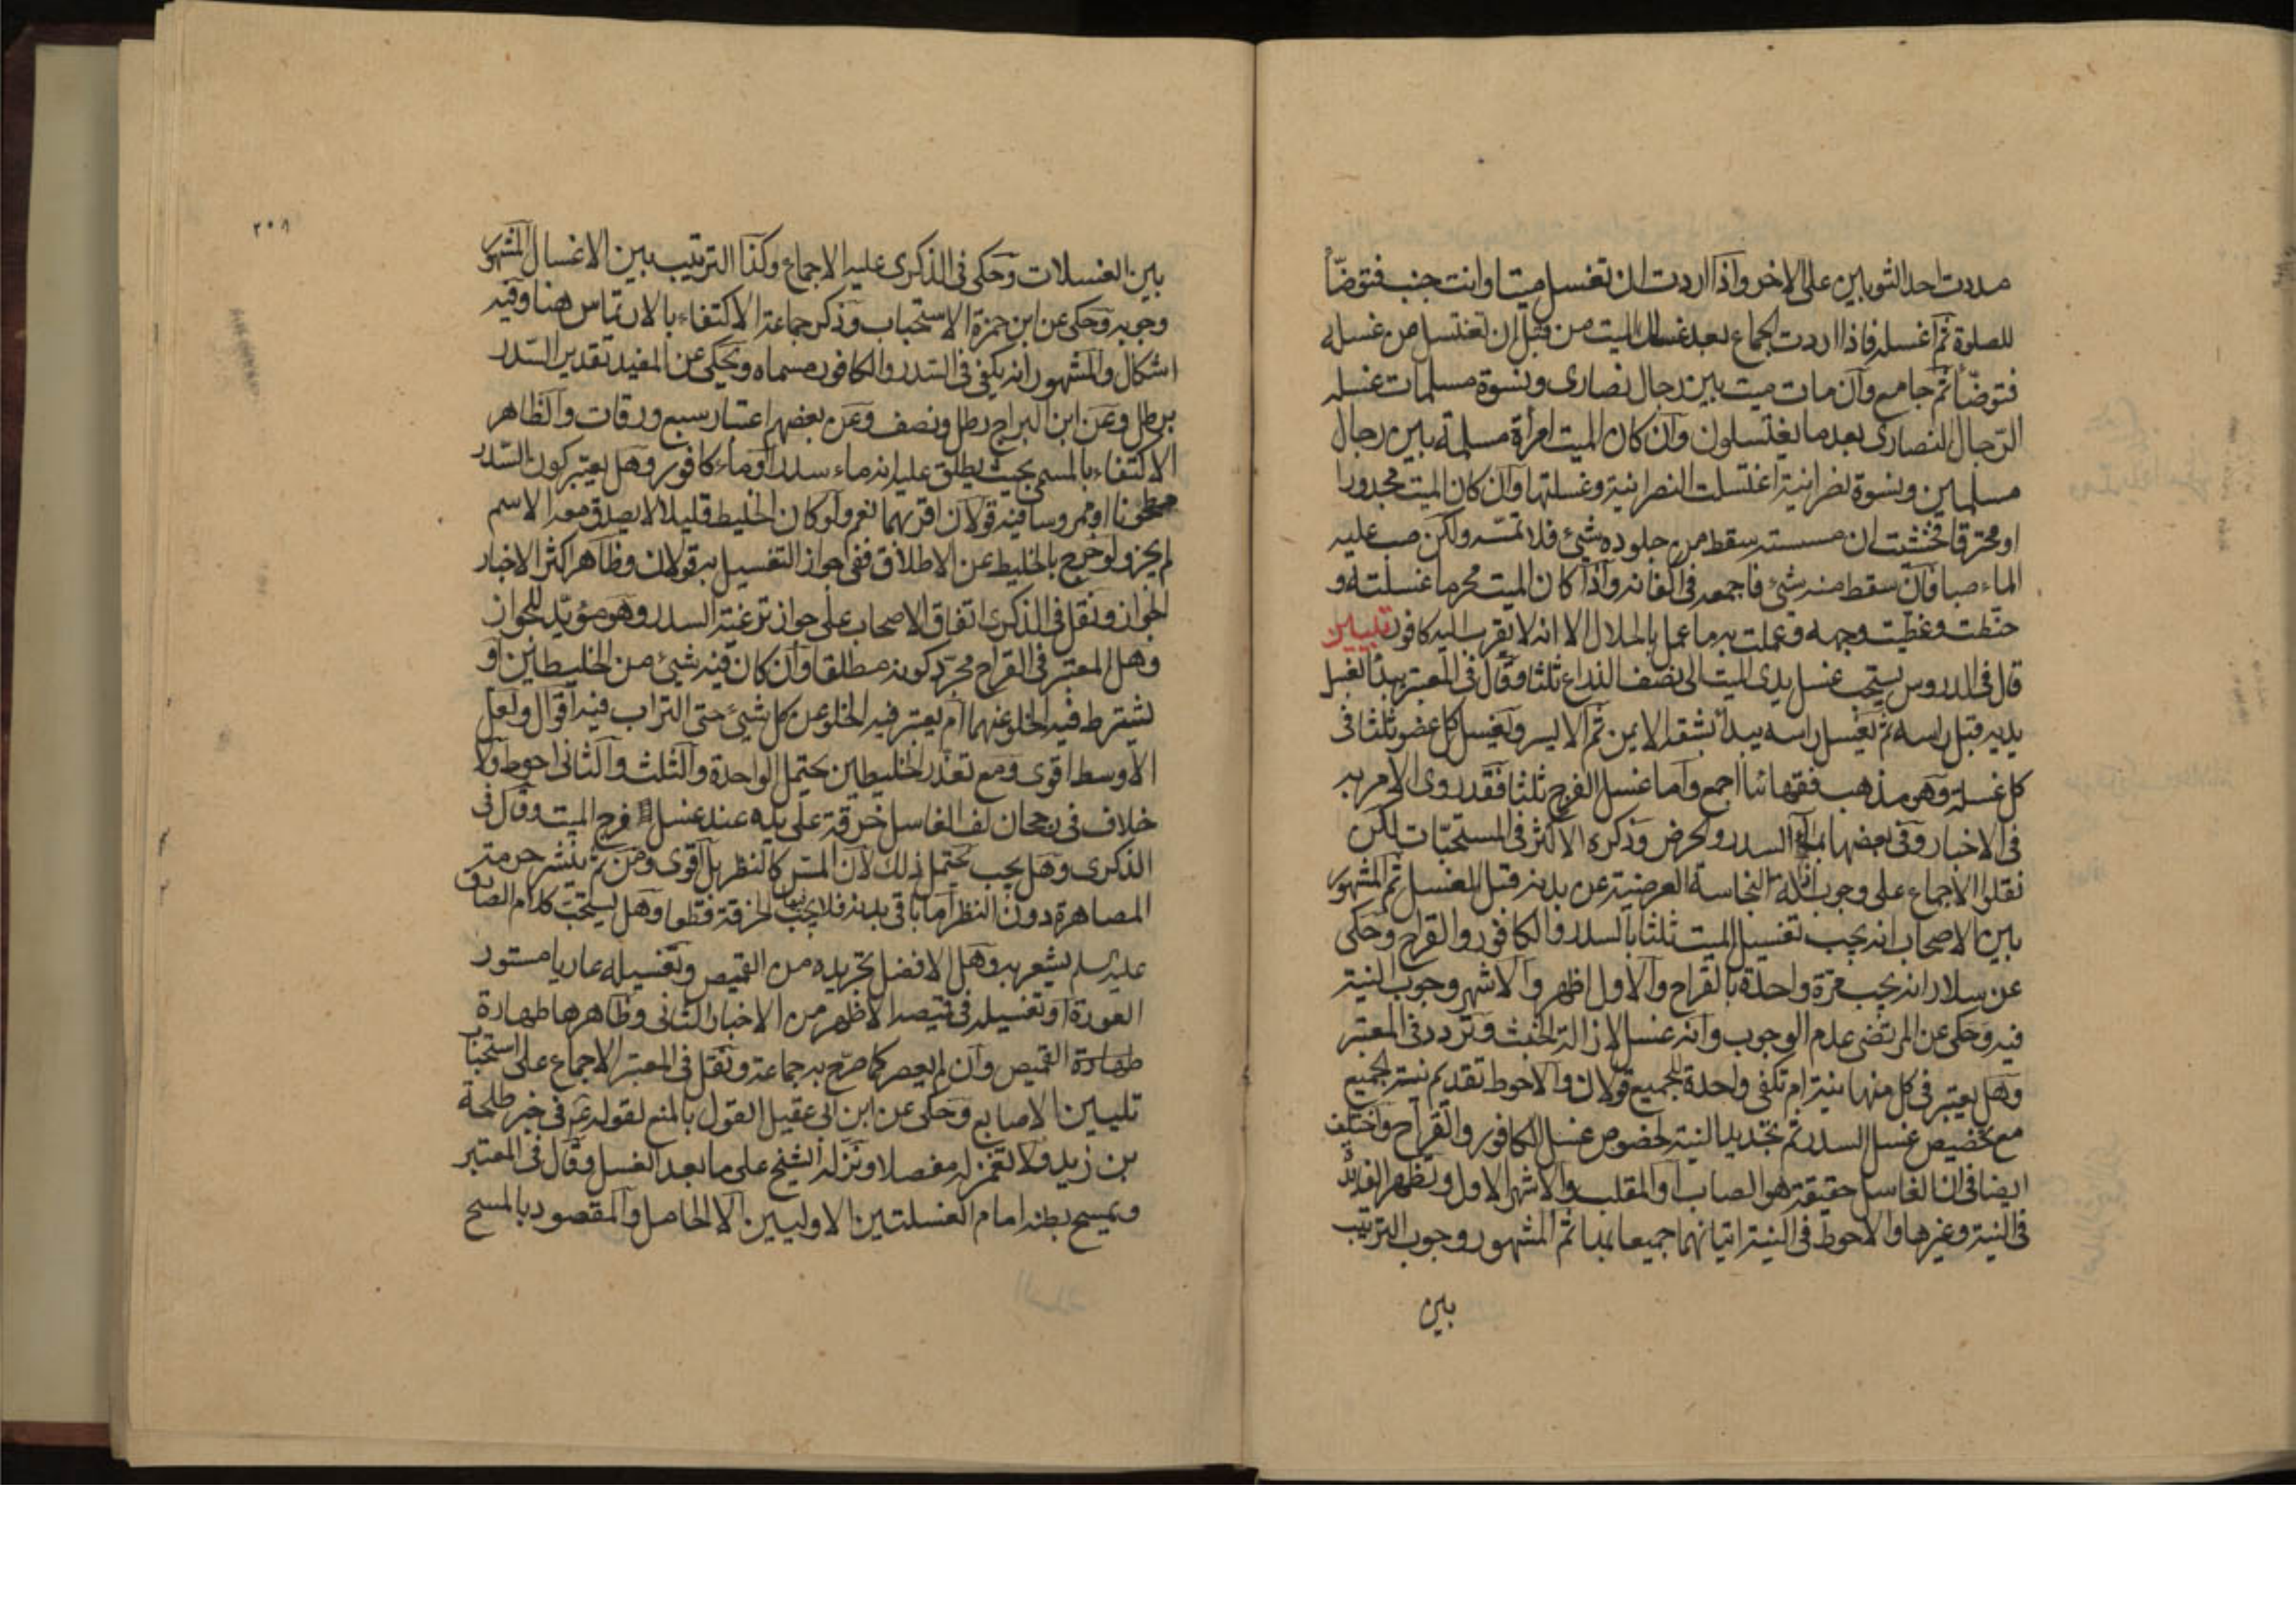 مددت احد الثوبين على الاخر واذا اردت ان تغسل ميتا وانت جنب فتوضّأ
للصلوة ثم اغسله فاذا اردت الجماع بعد غسلك الميت من قبل ان تغتسل من غسله
فتوضّأ ثم جامع وان مات ميت بين رجال نصارى ونسوة مسلمات غسله
الرّجال النصارى بعد ما يغتسلون وان كان الميت امرأة مسلمة بين رجال
مسلمين ونسوة نصرانية اغتسلت النصرانية وغسلتها وان كان الميت مجدورا
او محترقا فخشيت ان مسسته سقط من جلوده شئ فلا تمسّه ولكن صب عليه
الماء صبا فان سقط منه شئ فاجمعه فى اكفانه واذا كان الميت محرما غسلته و
حنّطت وغطّيت وجهه وعملت به ما عمل بالحلال الا انه لا يقرب اليه كافور تبيين
قال فى الدروس يستحب غسل يدى الميت الى نصف الذراع ثلثا وقال فى المعتبر يبدأ بغسل
يديه قبل راسه ثم يغسل راسه يبدأ بشقه الايمن ثم الايسر ويغسل كل عضو ثلثا فى
كل غسلة وهو مذهب فقهائنا اجمع واما غسل الفرج ثلثا فقد روى الامر به
فى الاخبار وفى بعضها بماء السدر والحرض وذكره الاكثر فى المستحبّات لكن
نقلوا الاجماع على وجوب ازالة النجاسة العرضية عن بدنه قبل الغسل ثم المشهور
بين الاصحاب انه يجب تغسيل الميت ثلثا بالسدر والكافور والقراح وحكى
عن سلار انه يجب مرة واحدة بالقراح والاول اظهر والاشهر وجوب النية
فيه وحكى عن المرتضى عدم الوجوب وانه غسل لازالة الخبث وتردد فى المعتبر
وهل يعتبر فى كل منها نية ام تكفى واحدة للجميع قولان والاحوط تقديم نية الجميع
مع تخصيص غسل السدر ثم تجديد النية لخصوص غسل الكافور والقراح واختلف
ايضا فى ان الغاسل حقيقة هو الصاب او المقلب والاشهر الاول وتظهر الفائدة
فى النية وغيرها والاحوط فى النية اتيانهما جميعا بها ثم المشهور وجوب الترتيب
بين
٢٠٨
بين الغسلات وحكى فى الذكرى عليه الاجماع وكذا الترتيب بين الاغسال المشهور
وجوبه وحكى عن ابن حمزة الاستحباب وذكر جماعة الاكتفاء بالارتماس هنا وفيه
اشكال والمشهور انه يكفى فى السّدر والكافور مسماه ويحكى عن المفيد تقدير السّدر
برطل وعن ابن البراج رطل ونصف وعن بعضهم اعتبار سبع ورقات والظاهر
الاكتفاء بالمسمى بحيث يطلق عليه انه ماء سدر او ماء كافور وهل يعتبر كون السّدر
مطحونا او ممروسا فيه قولان اقربهما نعم ولو كان الخليط قليلا لا يصدق معه الاسم
لم يجز ولو خرج بالخليط عن الاطلاق ففى جواز التغسيل به قولان وظاهر اكثر الاخبار
الجواز ونقل فى الذكرى اتفاق الاصحاب على جواز ترغية السدر وهو مؤيّد للجواز
وهل المعتبر فى القراح مجرّد كونه مطلقا وان كان فيه شئ من الخليطين او
يشترط فيه الخلو عنهما ام يعتبر فيه الخلو عن كل شئ حتى التراب فيه اقوال ولعل
الاوسط اقوى ومع تعذر الخليطين يحتمل الواحدة والثلث والثانى احوط ولا
خلاف فى رجحان لف الغاسل خرقة على يده عند غسل فرج الميت وقال فى
الذكرى وهل يجب يحتمل ذلك لان المسّ كالنظر بل اقوى ومن ثم ينشر حرمة
المصاهرة دون النظر اما باقى بدنه فلا يجب الخرقة قطعا وهل يستحبّ كلام الصادق
عليه السلم يشعر به وهل الافضل تجريده من القميص وتغسيله عاريا مستور
العورة او تغسيله فى قميصه الاظهر من الاخبار الثانى وظاهرها طهارة
طهارة القميص وان لم يعصر كما صرّح به جماعة ونقل فى المعتبر الاجماع على استحباب
تليين الاصابع وحكى عن ابن ابى عقيل القول بالمنع لقوله ع فى خبر طلحة
بن زيد ولا تغمز له مفصلا ونزّله الشيخ على ما بعد الغسل وقال فى المعتبر
ويمسح بطنه امام الغسلتين الاوليين الا الحامل والمقصود بالمسح